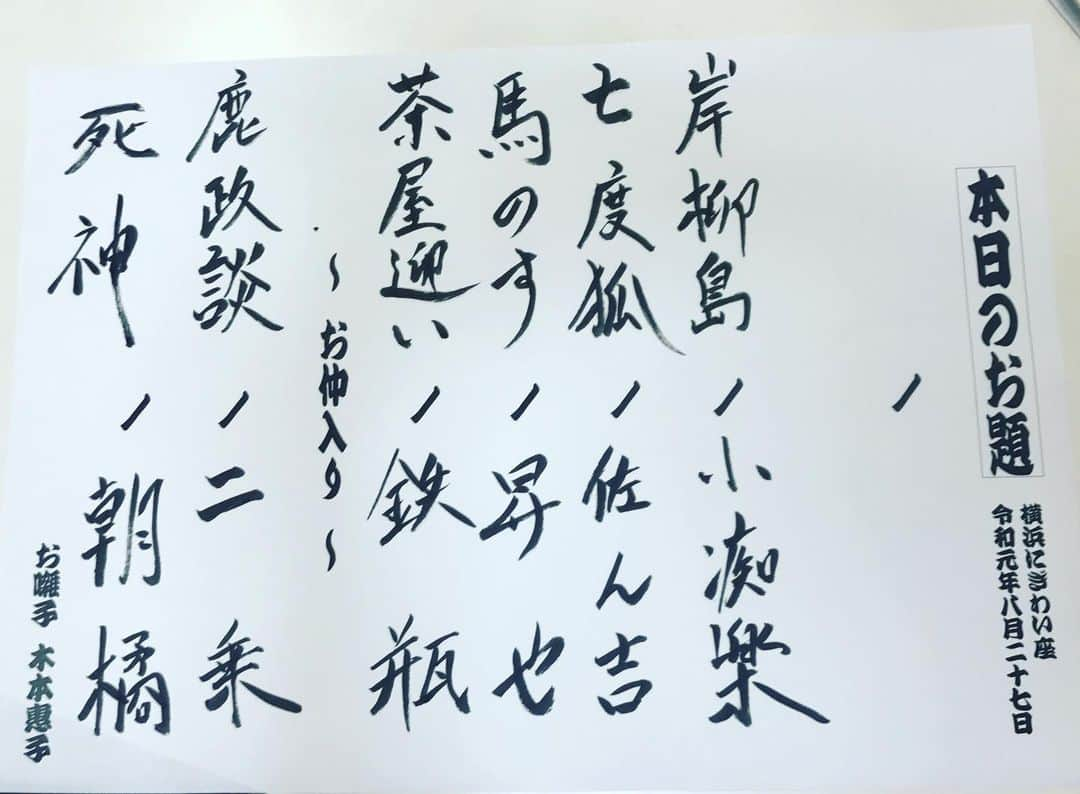 本日のお題
横浜にぎわい座
令和元年八月二十七日
ノ
岸柳島ノ小痴楽
七度狐ノ佐ん吉
馬のすノ昇也
茶屋迎いノ鉄瓶
～お仲入り～
鹿政談ノ二乗
死神ノ朝橘
お囃子 木本惠子